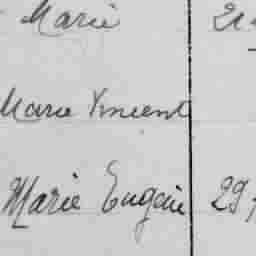 Marie
Marie Vincent
Marie Eugénie 29